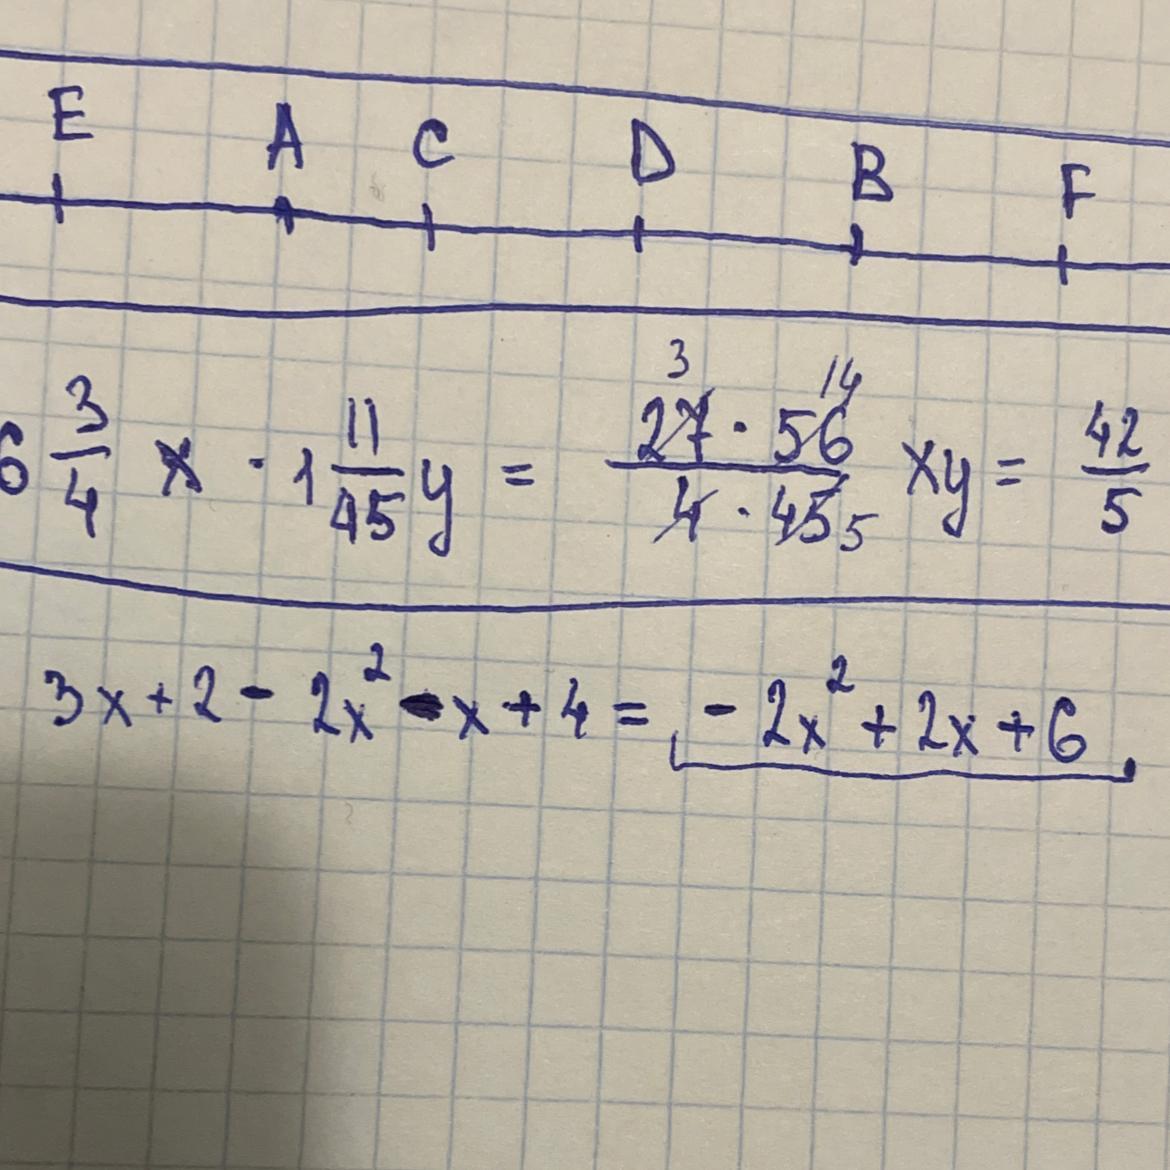 E A C D B F
6 3/4 x · 1 11/45 y = 27 · 56 / 4 · 45 xy = 42/5
3 14 5
3x + 2 - 2x² - x + 4 = - 2x² + 2x + 6